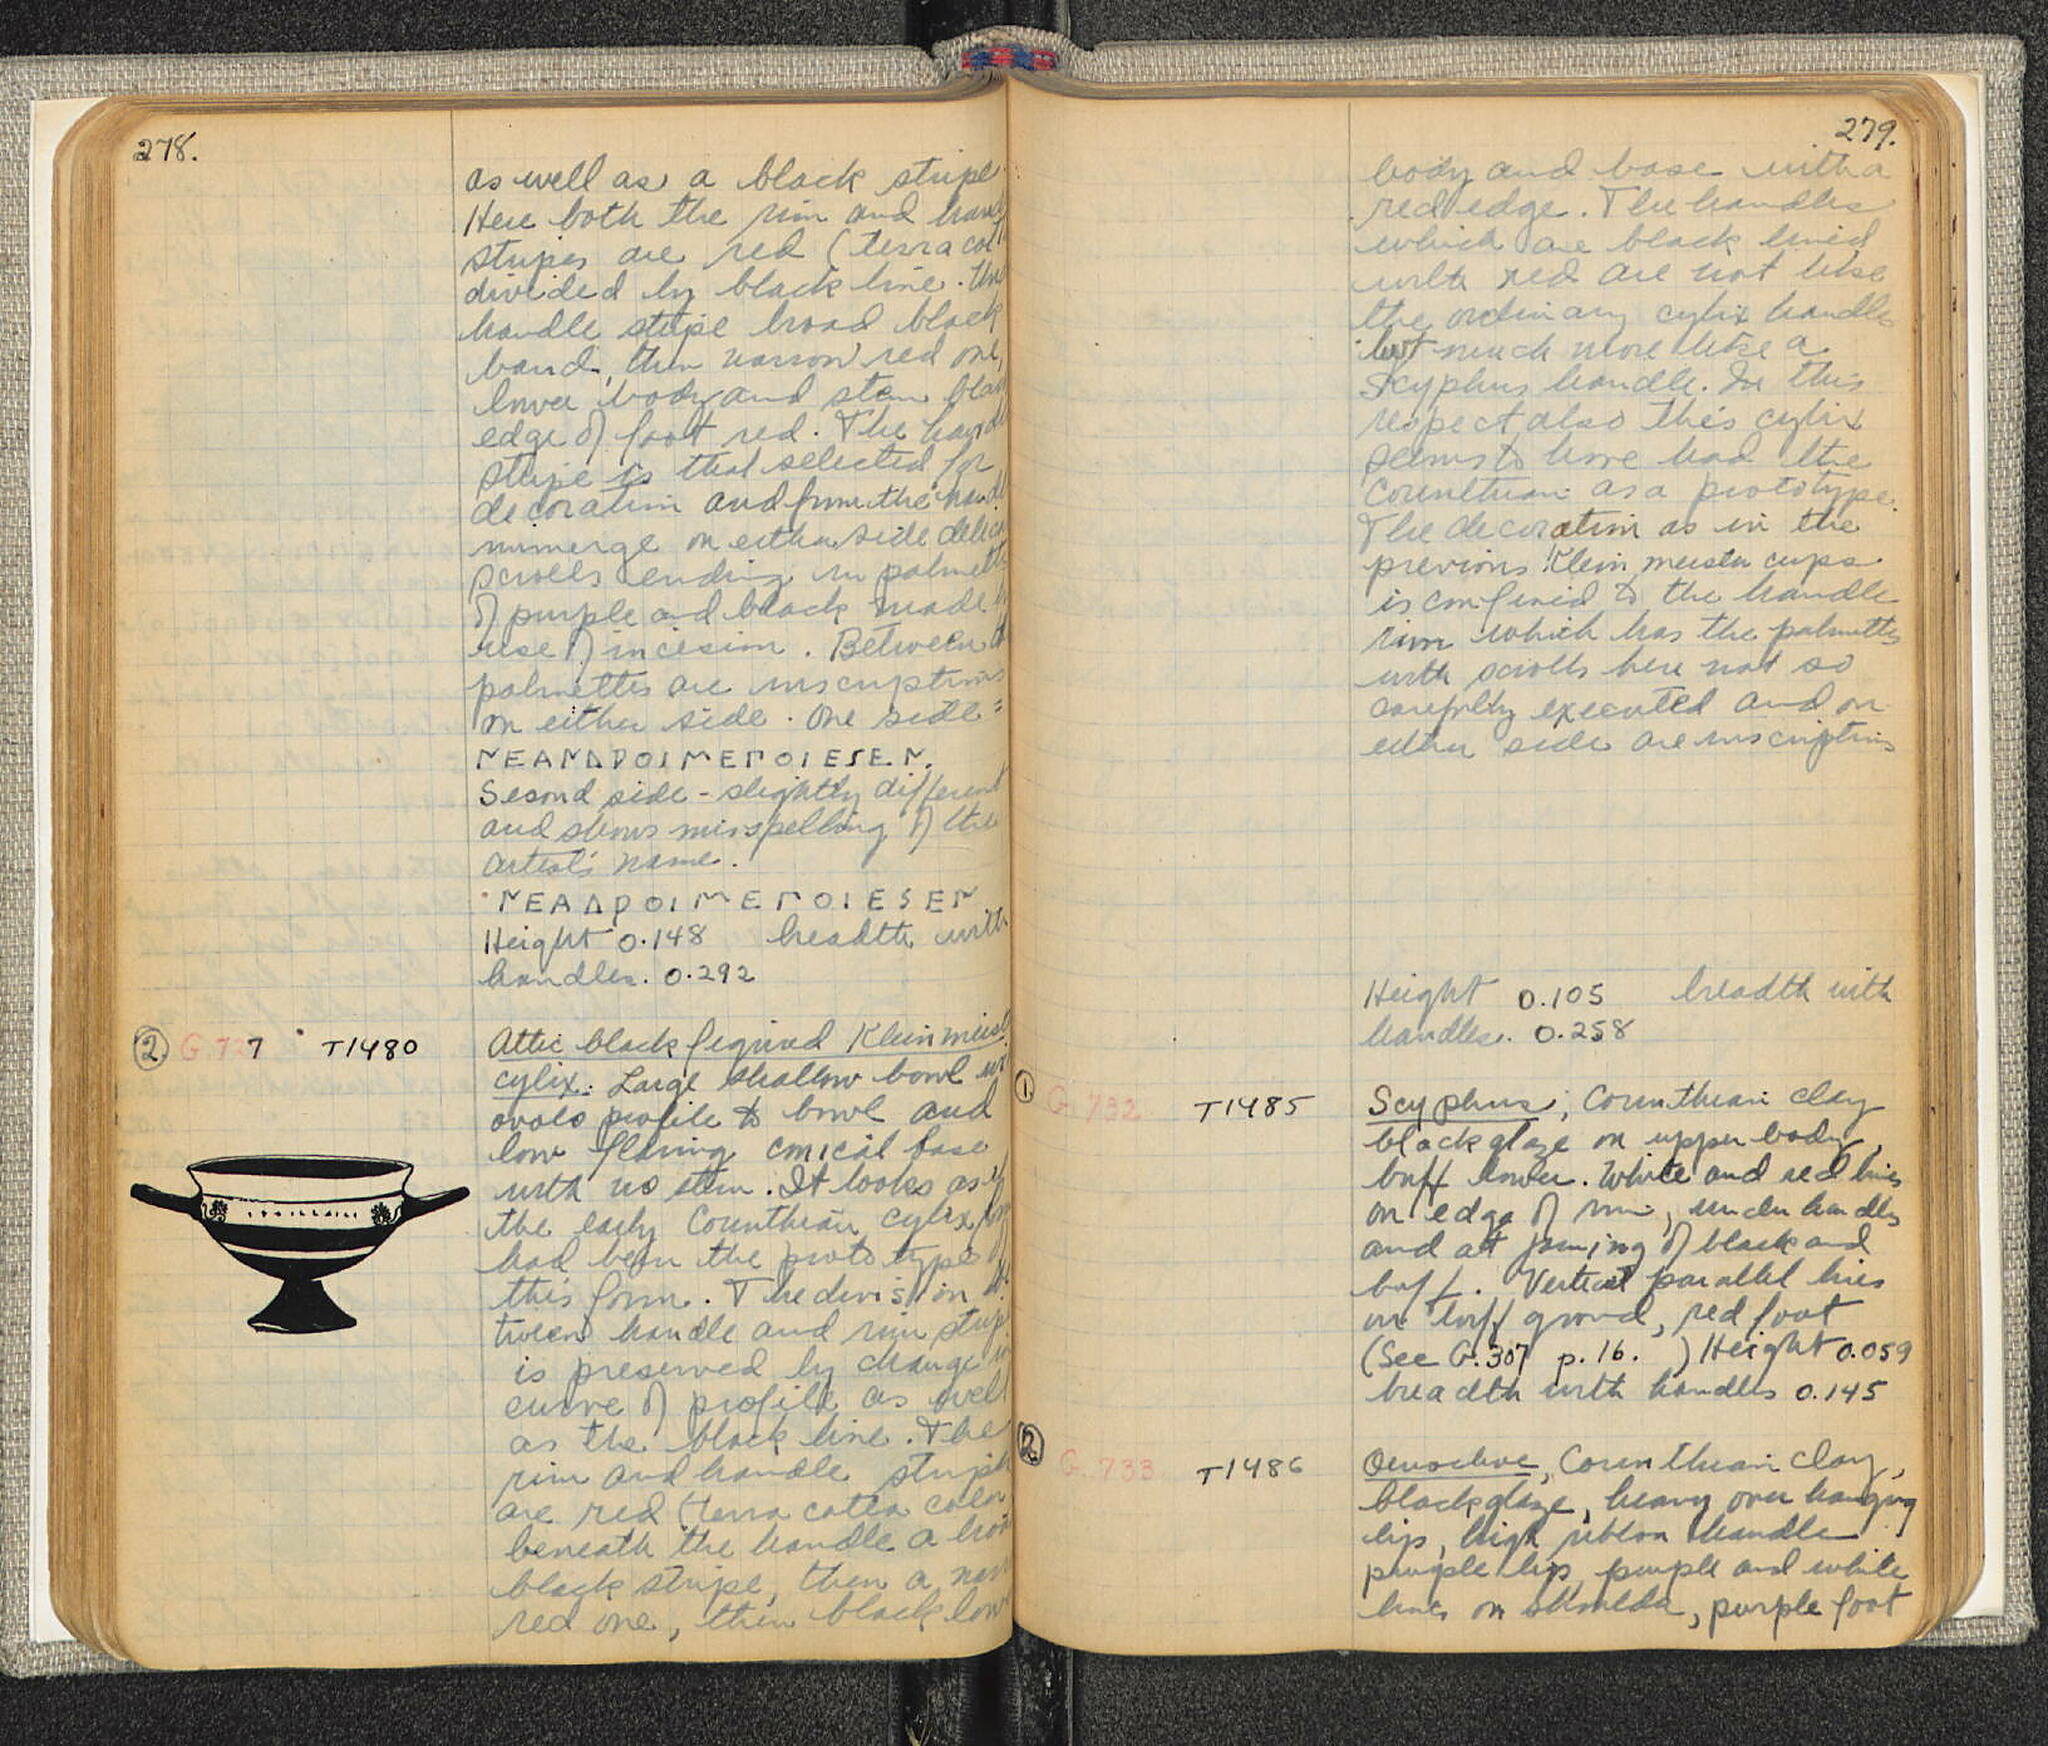 278.
as well as a black stripe
Here both the rim and hand
stripes are red (terra cott
divided by black line. Un
handle stripe broad black
band, then narrow red one,
lower body and stem blac
edge of foot red. The handl
stripe is that selected for
decoration and from the
emerge on either side delica
scrolls ending in palmett
of purple and black made
use of incision. Between th
palmettes are inscriptions
on either side. One side =
ΝΕΑΝΔΡΟΙΜΕΠΟΙΕSΕΝ.
Second side - slightly different
and shows misspelling of the
artist's name.
ΝΕΑΔΡΟΙΜΕΠΟΙΕSΕΝ
Height 0.148 breadth with
handles. 0.292
2. G. 727 T1480
Attic black figured Kleinmeist
cylix. Large shallow bowl
ovolo profile to bowl and
low flaring conical base
with no stem. It looks as if
the early Corinthian cylix form
had been the prototype of
this form. The division be
tween handle and rim strip
is preserved by change in
curve of profile as well
as the black line. The
rim and handle strips
are red (terra cotta color
beneath the handle a broa
black stripe, then a narr
red one, then black low
279.
body and base with a
red edge. The handles
which are black lined
with red are not like
the ordinary cylix handles
but much more like a
Scyphus handle. In this
respect also this cylix
seems to have had the
Corinthian as a prototype.
The decoration as in the
previous Kleinmeister cups
is confined to the handle
rim which has the palmettes
with scrolls here not so
carefully executed and on
either side are inscriptions
Height 0.105 breadth with
handles. 0.258
1. G. 732 T1485
Scyphus; Corinthian clay
black glaze on upper body,
buff lower. White and red lines
on edge of rim, under handles
and at joining of black and
buff. Vertical parallel lines
on buff ground, red foot
(See G. 307 p. 16. ) Height 0.059
breadth with handles 0.145
2. G. 733 T1486
Oenochoe, Corinthian clay,
black glaze, heavy over hanging
lip, high ribbon handle
purple lip, purple and white
lines on shoulder, purple foot